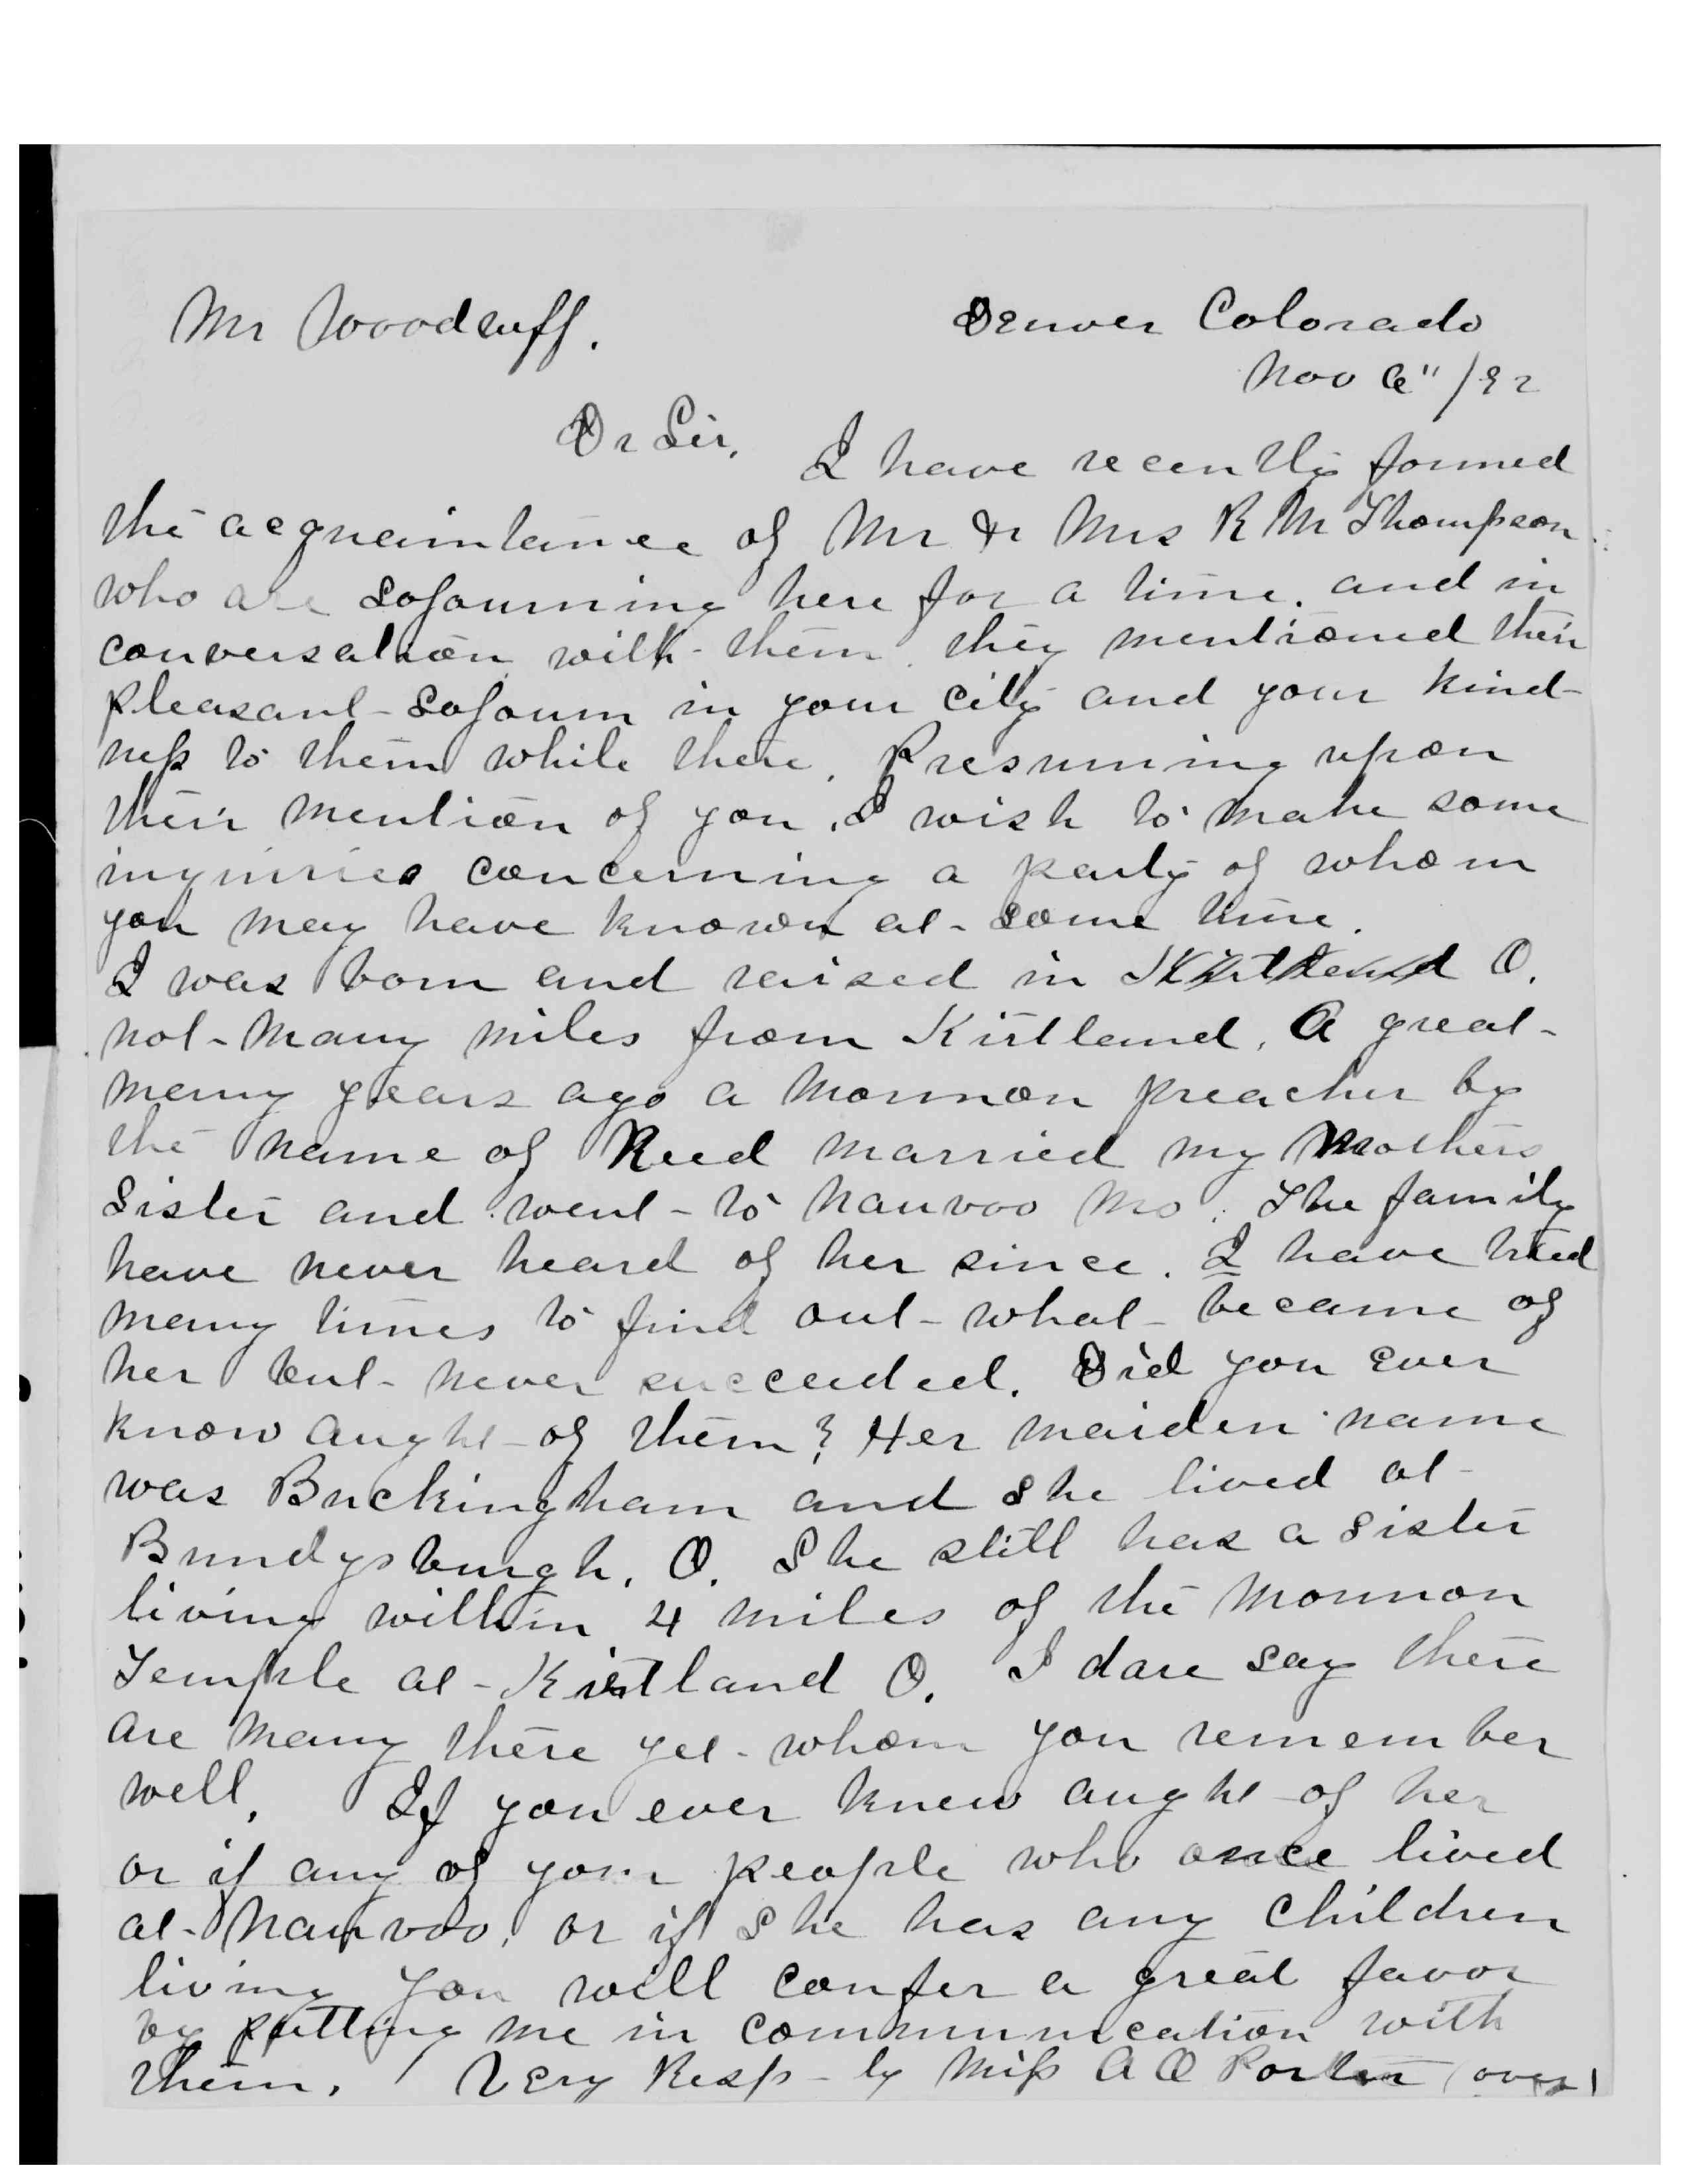 Mr Woodruff.
Denver Colorado
Nov 6"/92
Dr Sir,
I have recently formed
the acquaintance of Mr & Mrs R M Thompson
who are sojourning here for a time. and in
conversation with them. they mentioned their
pleasant sojourn in your city and your kind-
ness to them while there. Presuming upon
their mention of you. I wish to make some
inquiries concerning a party of whom
you may have known at some time.
I was born and raised in Kirtland O.
not many miles from Kirtland. A great
many years ago a Mormon preacher by
the name of Reed married my Mothers
Sister and went to Nauvoo Mo. The family
have never heard of her since. I have tried
many times to find out what became of
her but never succeeded. Did you ever
know aught of them? Her maiden name
was Buckingham and she lived at
Bundysburgh, O. She still has a sister
living within 4 miles of the Mormon
Temple at Kirtland O. I dare say there
are many there yet whom you remember
well. If you ever knew aught of her
or if any of your people who once lived
at Nauvoo, or if she has any children
living you will confer a great favor
by putting me in communication with
them. Very Resp-ly Miss A O Porter (over)